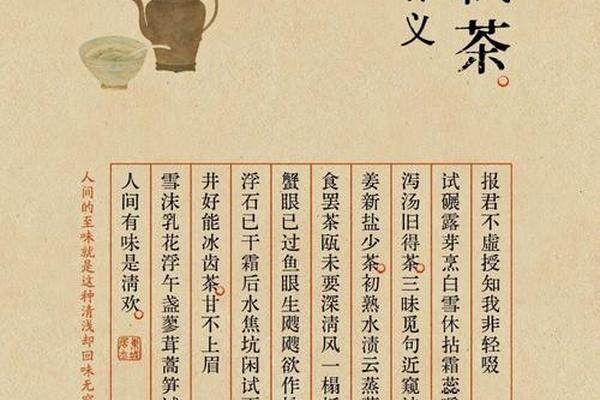 茶
义
报君不虚授知我非轻啜
试碾露芽烹白雪休拈霜蕊
泻汤旧得茶三昧觅句近窥
姜新盐少茶初熟水渍云蒸
食罢茶瓯未要深清风一榻
蟹眼已过鱼眼生飕飕欲作
浮石已干霜后水焦坑闲试
井好能冰齿茶甘不上眉
雪沫乳花浮午盏蓼茸蒿笋
人间有味是清欢
人间的至味就是这种清浅却回味无